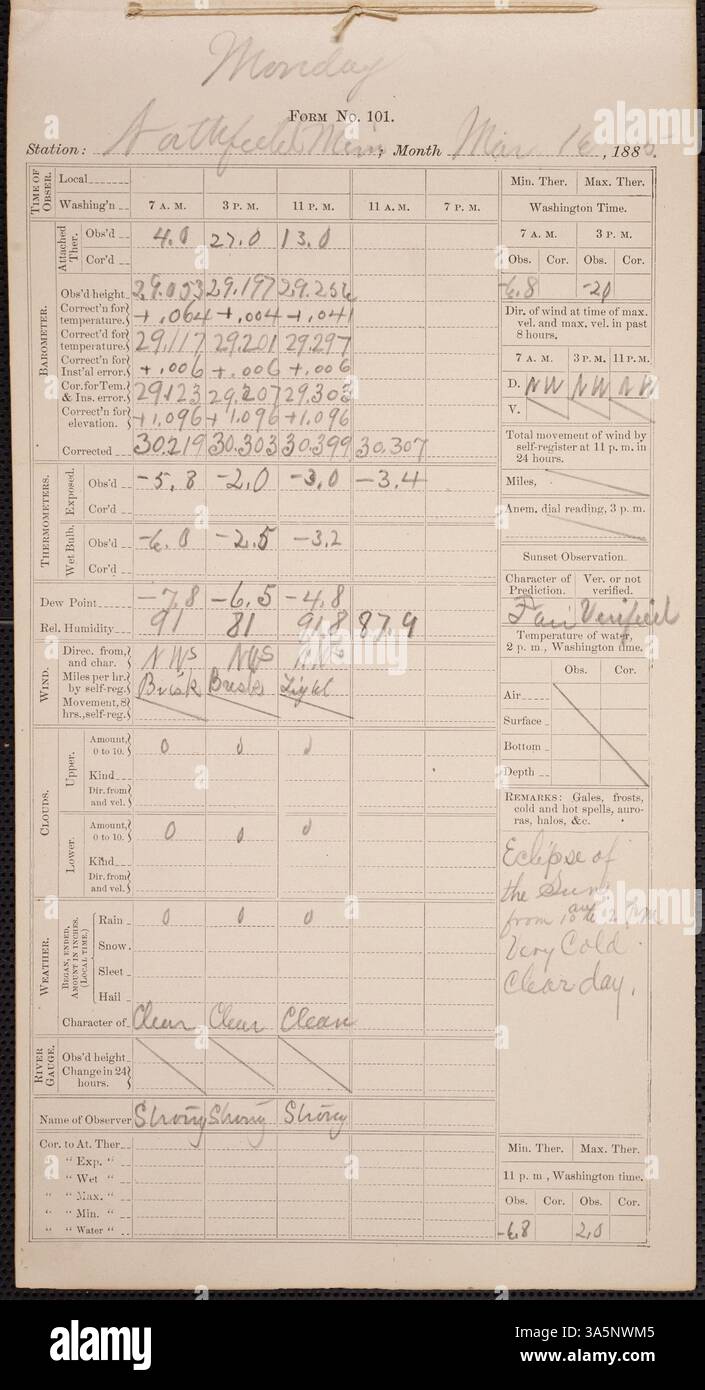 Monday
FORM NO. 101.
Station: Northfield Minn; Month Mar 16, 1885.
TIME OF OBSER. Local
Washing'n 7 A. M. 3 P. M. 11 P. M. 11 A. M. 7 P. M.
BAROMETER.
Attached Ther. Obs'd 4.0 27.0 13.0
Cor'd
Obs'd height 29.053 29.197 29.256
Correct'n for temperature. +.064 +.004 +.041
Correct'd for temperature. 29.117 29.201 29.297
Correct'n for Inst'al error. +.006 +.006 +.006
Cor. for Tem. & Ins. error. 29.123 29.207 29.303
Correct'n for elevation. +1.096 +1.096 +1.096
Corrected 30.219 30.303 30.399 30.307
THERMOMETERS.
Exposed. Obs'd -5.8 -2.0 -3.0 -3.4
Cor'd
Wet Bulb. Obs'd -6.0 -2.5 -3.2
Cor'd
Dew Point -7.8 -6.5 -4.8
Rel. Humidity 91 81 91.8 87.9
WIND.
Direc. from, and char.
Miles per hr. by self-reg. Brisk Brisk Light
Movement, 8 hrs., self-reg.
CLOUDS.
Upper. Amount, 0 to 10. 0 0 0
Kind
Dir. from and vel.
Lower. Amount, 0 to 10. 0 0 0
Kind
Dir. from and vel.
WEATHER.
BEGAN, ENDED, AMOUNT IN INCHES. (LOCAL TIME.)
Rain 0 0 0
Snow
Sleet
Hail
Character of Clear Clear Clear
RIVER GAUGE.
Obs'd height
Change in 24 hours.
Name of Observer Strong Strong Strong
Cor. to At. Ther
" " Exp. "
" " Wet "
" " Max. "
" " Min. "
" " Water "
Min. Ther. Max. Ther.
Washington Time.
7 A. M. 3 P. M.
Obs. Cor. Obs. Cor.
-6.8 -20
Dir. of wind at time of max. vel. and max. vel. in past 8 hours.
7 A. M. 3 P.M. 11 P.M.
D. NW NW NW
V.
Total movement of wind by self-register at 11 p. m. in 24 hours.
Miles,
Anem. dial reading, 3 p. m.
Sunset Observation.
Character of Prediction. Ver. or not verified.
Fair Verified
Temperature of water, 2 p. m., Washington time.
Obs. Cor.
Air
Surface
Bottom
Depth
REMARKS: Gales, frosts, cold and hot spells, auroras, halos, &c.
Eclipse of
the Sun
from 10
Very Cold
Clear day.
Min. Ther. Max. Ther.
11 p. m., Washington time.
Obs. Cor. Obs. Cor.
-6.8 2.0
alamy
Image ID: 3A5NWM5
www.alamy.com